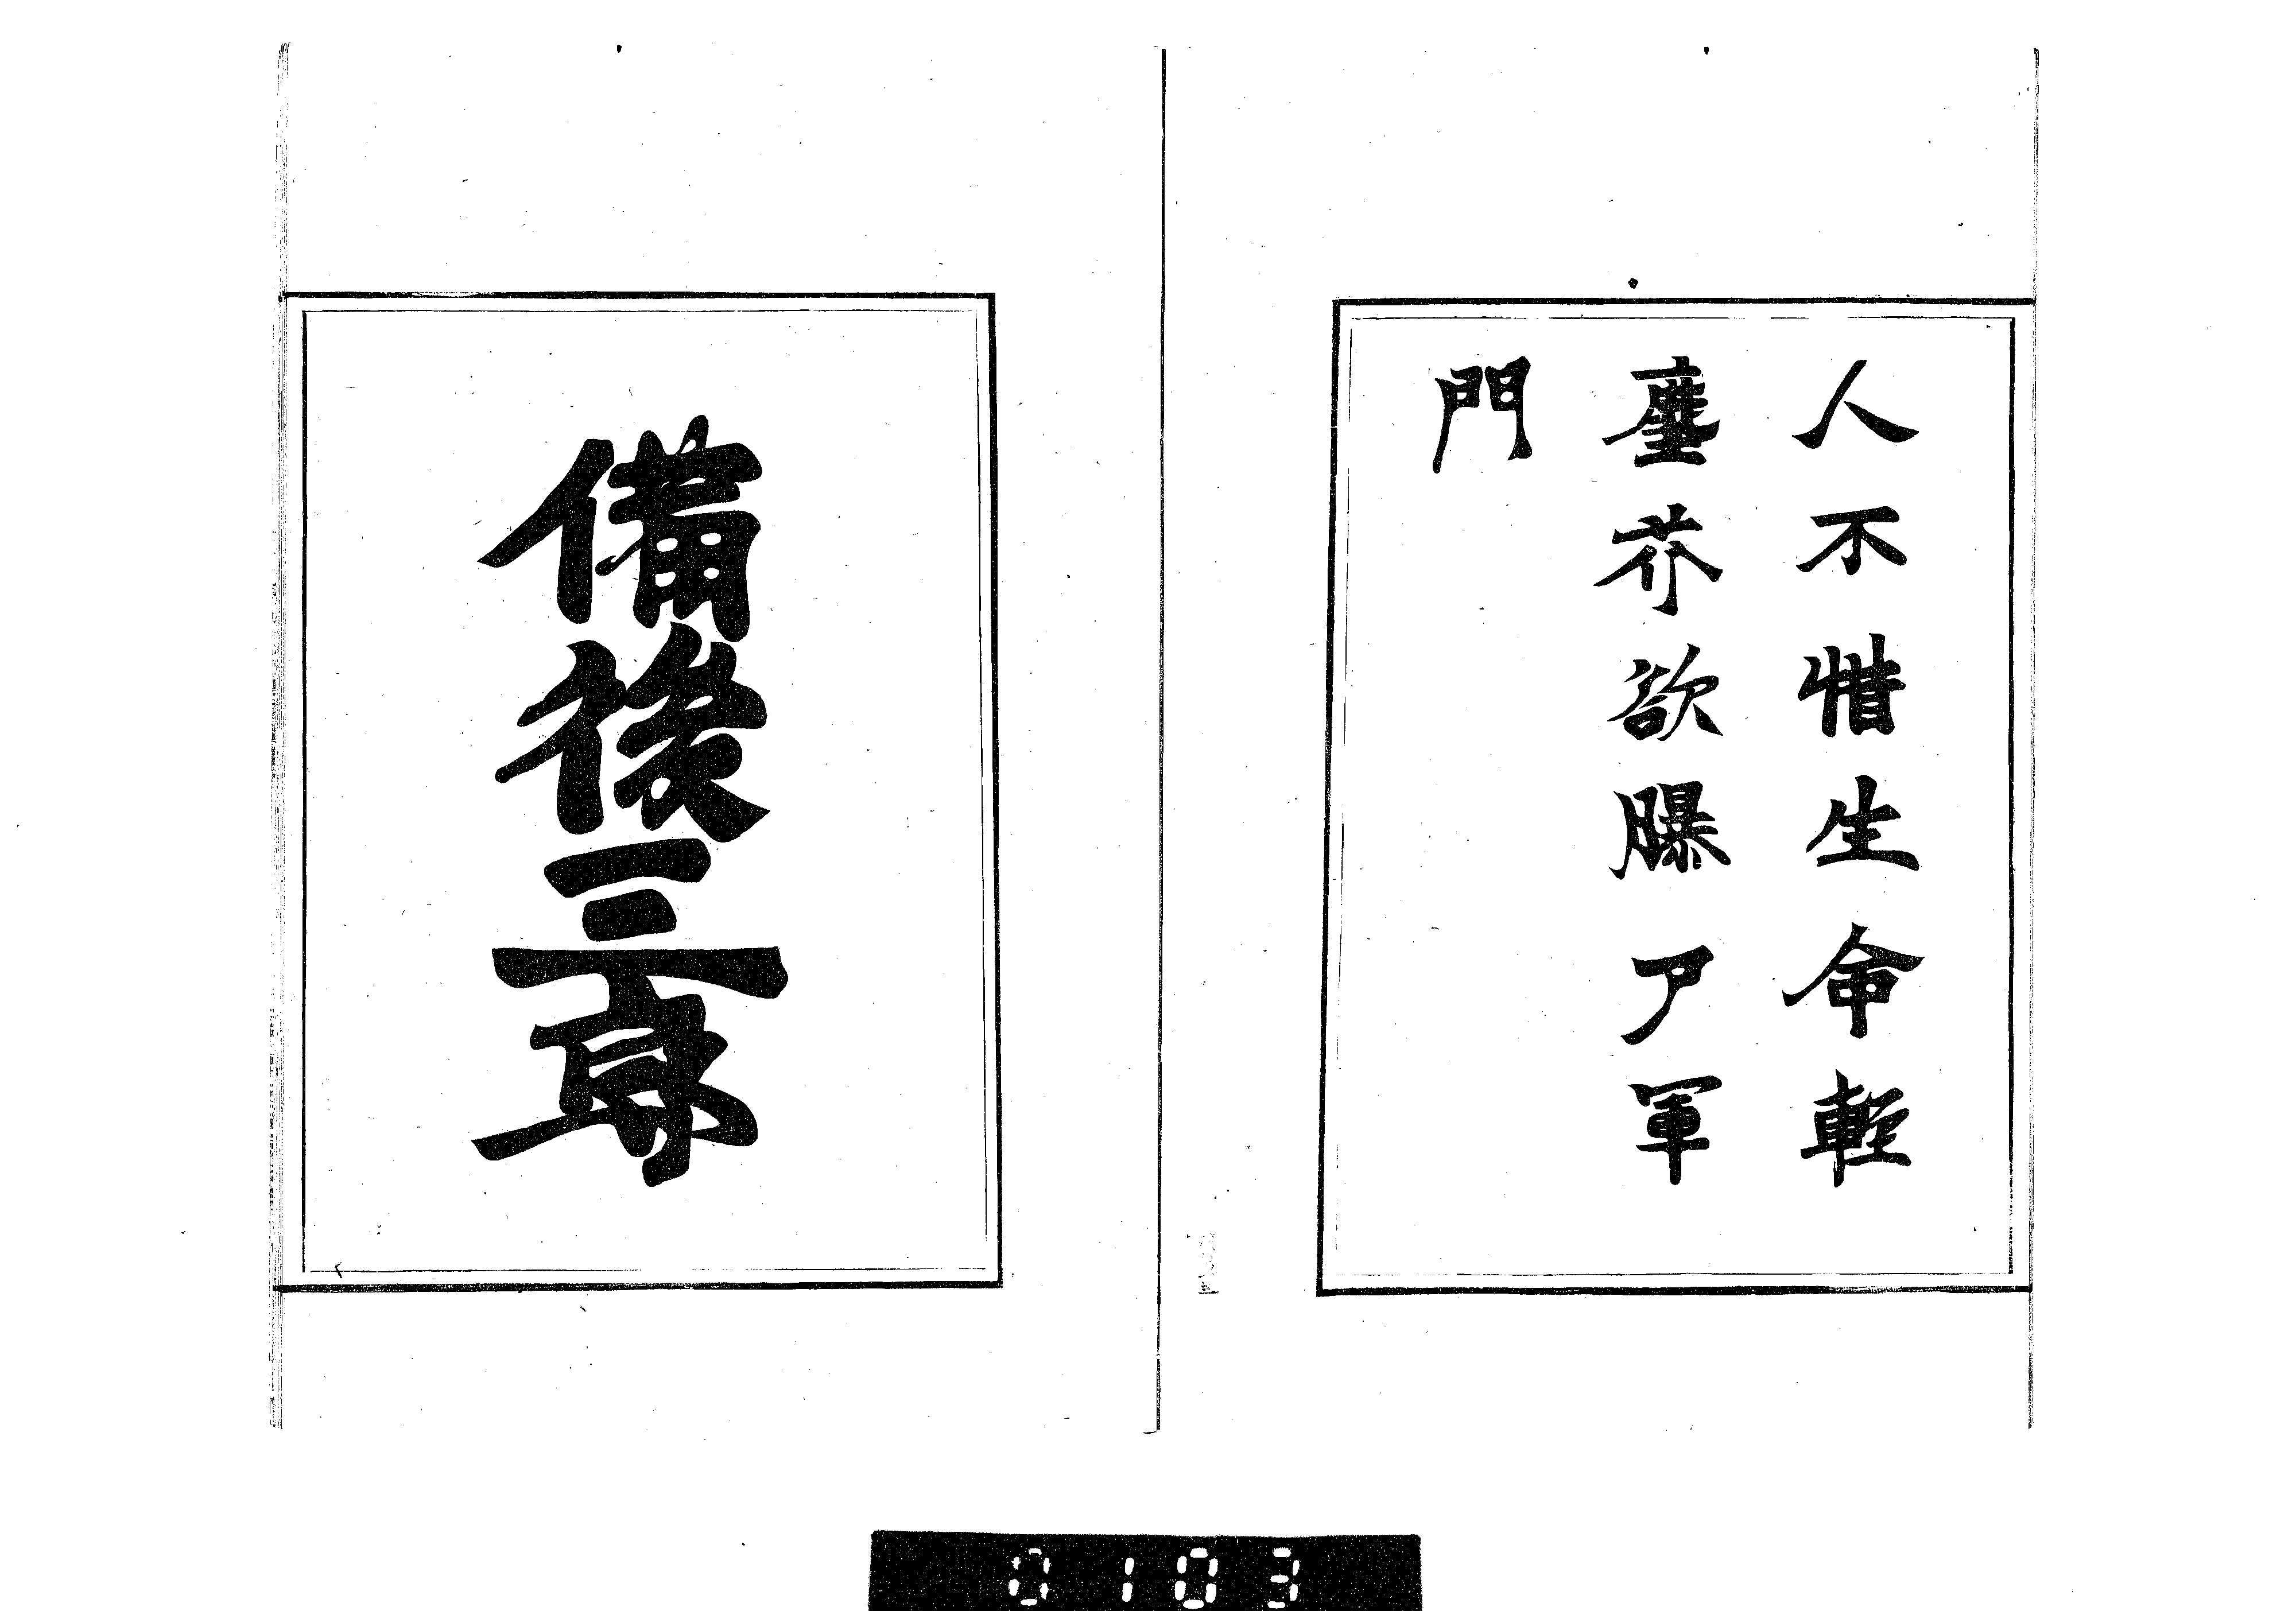 人不惜生命軽
塵芥欲曝尸軍
門
備後三郎
0103